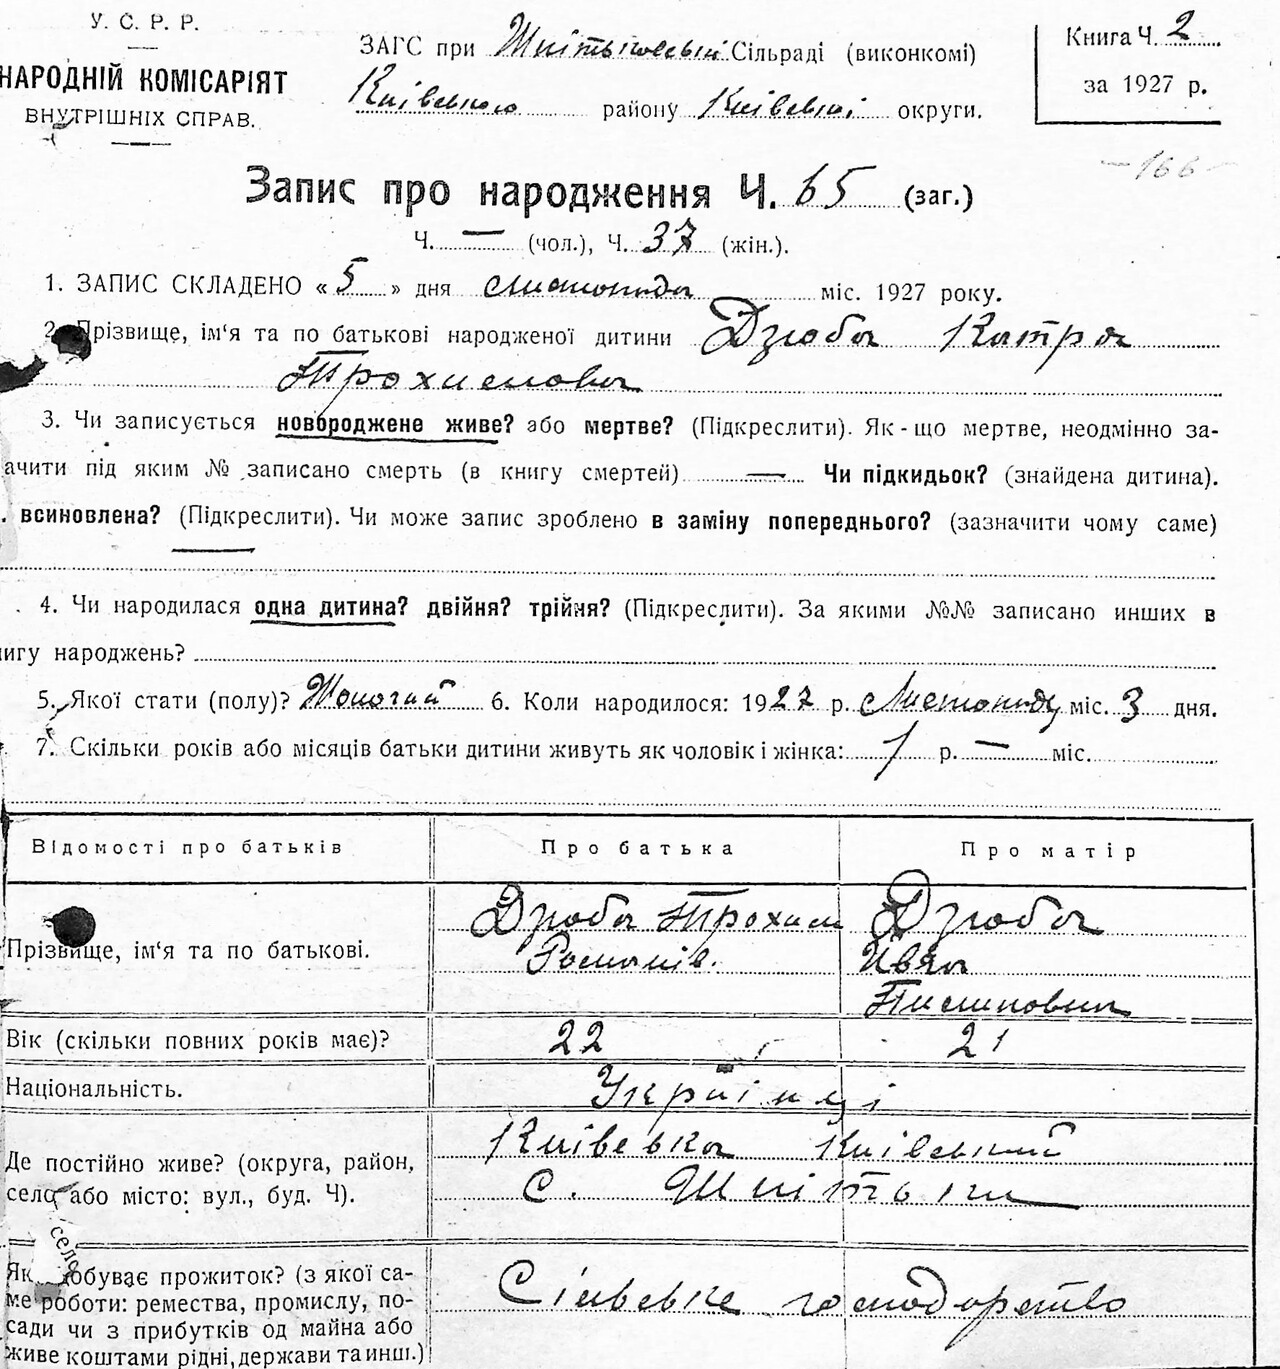 У. С. Р. Р.
НАРОДНІЙ КОМІСАРІЯТ
ВНУТРІШНІХ СПРАВ.
ЗАГС при Шпітьківській Сільраді (виконкомі)
Київського району Київської округи.
Книга Ч. 2
за 1927 р.
-166-
Запис про народження Ч. 65 (заг.)
Ч. — (чол.), Ч. 37 (жін.).
1. ЗАПИС СКЛАДЕНО « 5 » дня Листопада міс. 1927 року.
2. Прізвище, ім'я та по батькові народженої дитини Дзюба Катря
Трохимовна
3. Чи записується новороджене живе? або мертве? (Підкреслити). Як-що мертве, неодмінно за-
ачити під яким № записано смерть (в книгу смертей) — Чи підкидьок? (знайдена дитина).
. всиновлена? (Підкреслити). Чи може запис зроблено в заміну попереднього? (зазначити чому саме)
4. Чи народилася одна дитина? двійня? трійня? (Підкреслити). За якими №№ записано инших в
игу народжень?
5. Якої стати (полу)? Жіночий 6. Коли народилося: 1927 р. Листопаду міс. 3 дня.
7. Скільки років або місяців батьки дитини живуть як чоловік і жінка: 1 р. — міс.
Відомості про батьків Про батька Про матір
Прізвище, ім'я та по батькові. Дзюба Трохим Дзюба
Романів. Ивга
Пилиповна
Вік (скільки повних років має)? 22 21
Національність. Українці
Де постійно живе? (округа, район, Київська Київський
село або місто: вул., буд. Ч). с. Шпітьки
село
Як добуває прожиток? (з якої са- Сільське господарство
ме роботи: ремества, промислу, по-
сади чи з прибутків од майна або
живе коштами рідні, держави та инш.)